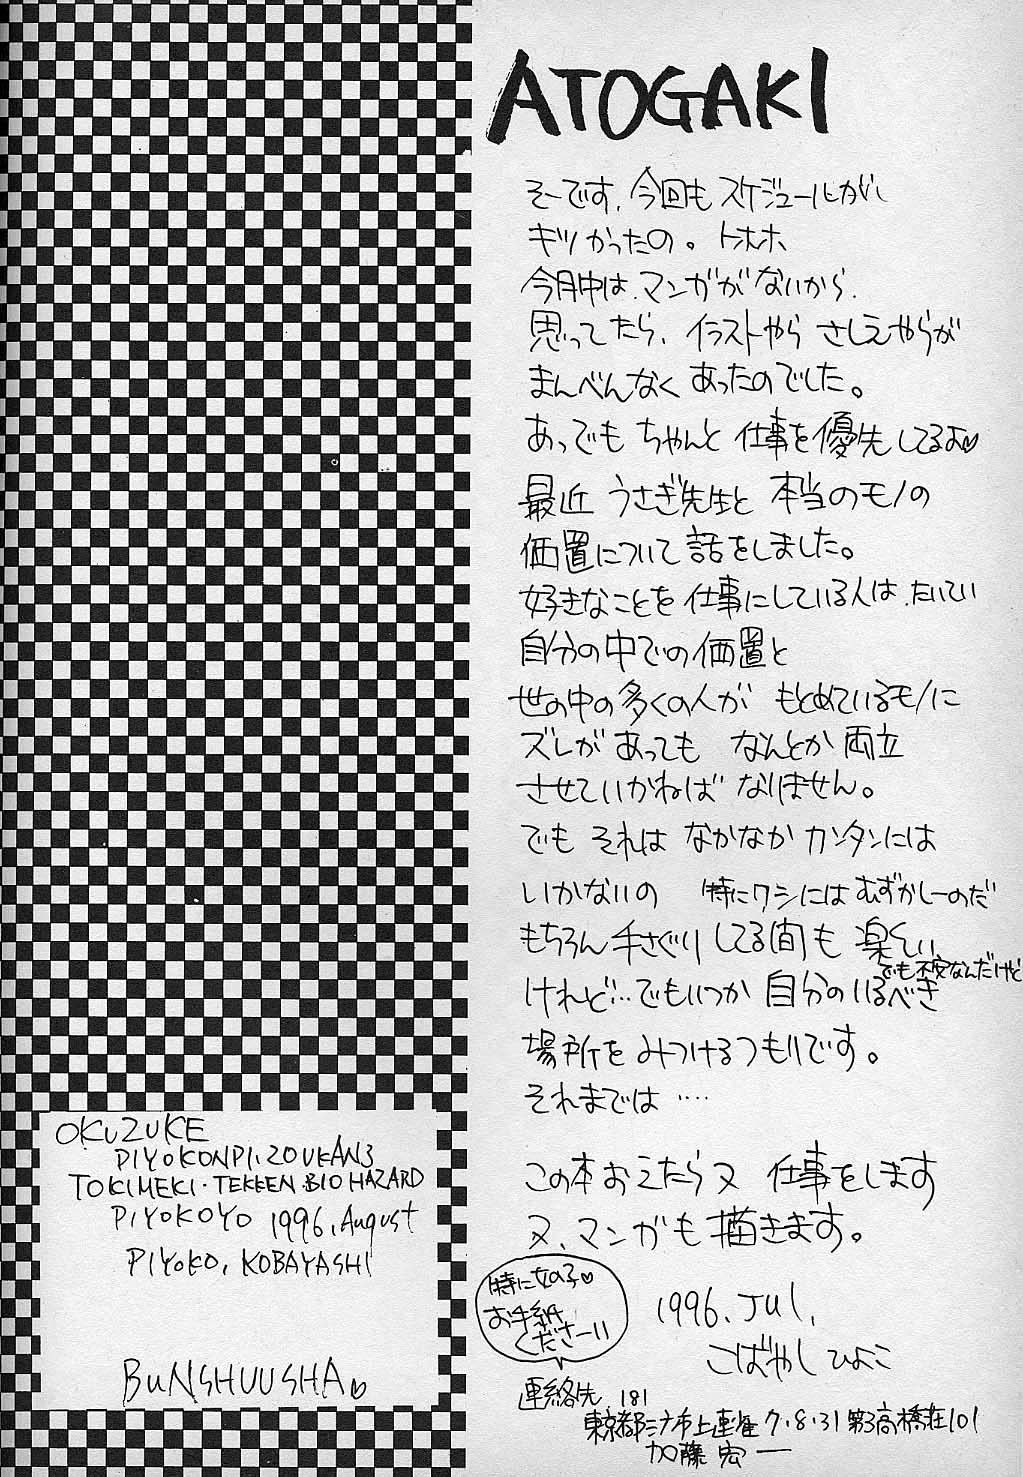 ATOGAKI
そーです、今回もスケジュールがし
キツかったの。トホホ
今月中は、マンガがないから、
思ってたら、イラストやら さしえやらが
まんべんなく あったのでした。
あっでも ちゃんと 仕事を優先してるよ♡
最近 うさぎ先生と 本当のモノの
価置について話をしました。
好きなことを仕事にしている人は、たいてい
自分の中での価置と
世の中の多くの人が もとめているモノに
ズレがあっても なんとか両立
させていかねば なりません。
でも それは なかなか カンタンには
いかないの 特にワシには むずかしーのだ
もちろん 手さぐりしてる間も 楽しい
でも不安なんだけど
けれど…でもいつか 自分のいるべき
場所を みつけるつもりです。
それまでは ‥‥
この本おえたら又 仕事をします
又、マンガも描きます。
1996. Jul,
こばやし ひよこ
特に女の子♡
お手紙
くださーい
連絡先 181
東京都三鷹市上連雀 7・8・31 第3高橋荘101
加藤 宏一
OKUZUKE
PIYOKONPI・ZOUKAN3
TOKIMEKI・TEKKEN・BIO HAZARD
PIYOKOYO 1996, August
PIYOKO, KOBAYASHI
BUNSHUUSHA♡